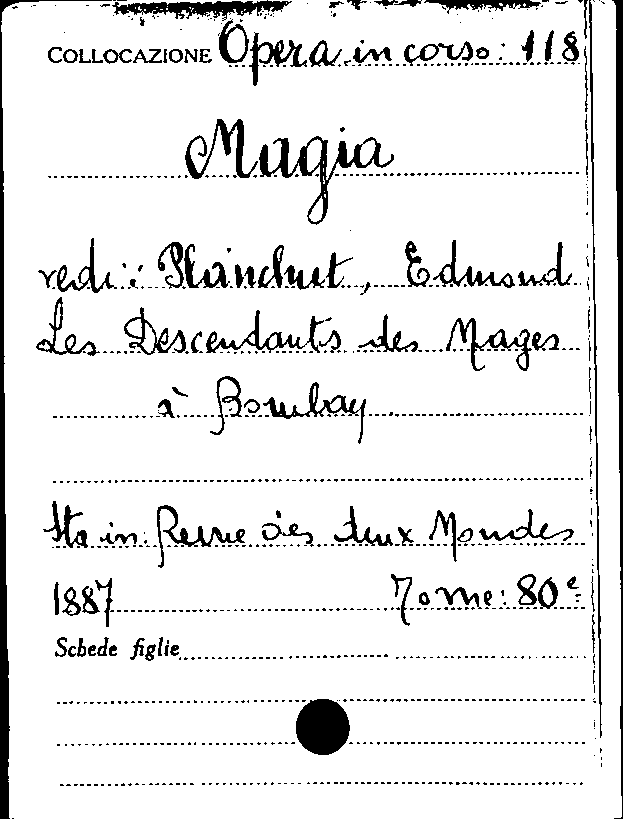 COLLOCAZIONE Opera in corso: 118
Magia
vedi: Planchut, Edmond
Les Descendants des Mages
à Bombay
Sta in: Revue des deux Mondes
1887 Tome: 80e
Schede figlie